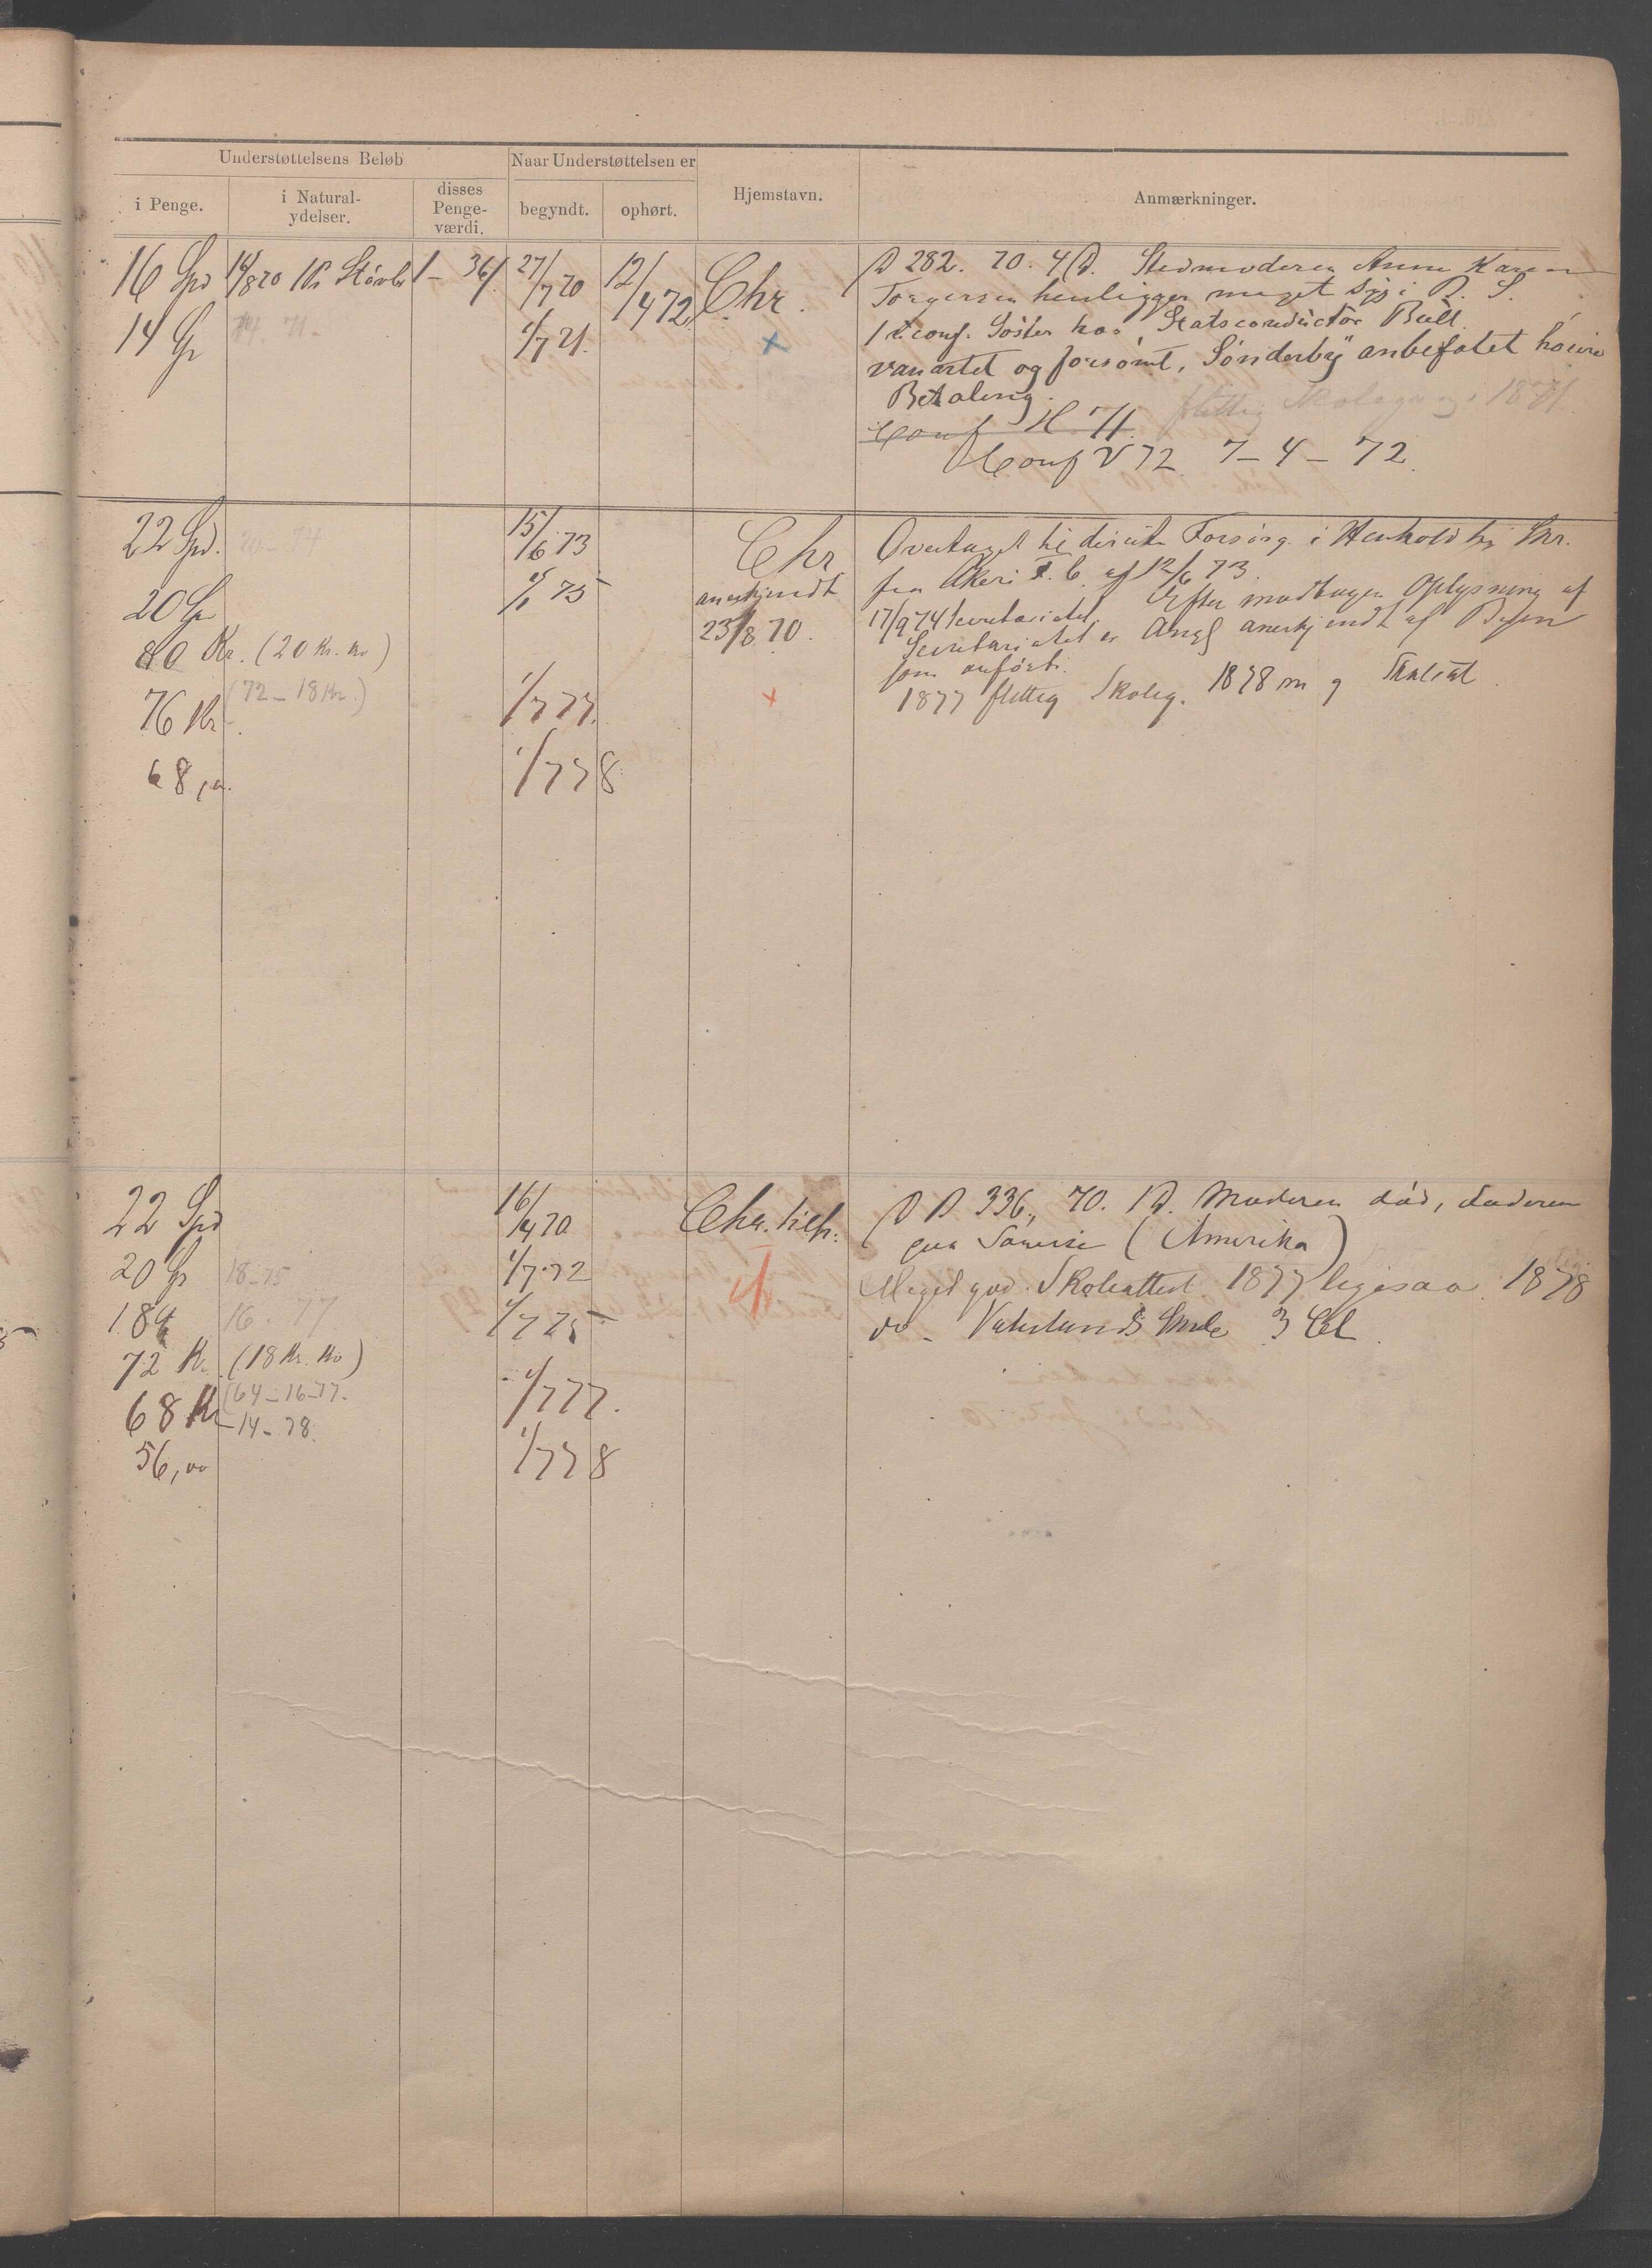 Understøttelsens Beløb
Naar Understøttelsen er
i Penge.
i Natural-
ydelser.
disses
Penge-
værdi.
begyndt.
ophørt.
Hjemstavn.
Anmærkninger.
16 Spd 14/8 70 1 Pr Støvler 1 - 36 27/7 70 12/4 72 Chr.
14 Sp 14. 71 - 1/7 71.
282. 70. 4 Stedmoderen Anne Karen
Torgersen henligger meget syg i R. S.
1 uconf. Søster hos Statsconductor Bull.
vanartet og forsømt, Sønderby anbefalet høiere
Betaling. flittig Skolegang 1871
Conf H 71.
Conf V 72. 7-4-72.
22 Spd. 20-74 15/6 73 Chr
20 Sp 1/1 75 anerkjendt
80 Kr. (20 Kr. Kv) 23/8 70.
76 Kr (72-18 Kr.) 1/7 77.
68,00. 1/7 78
Overtaget til directe Forsørg. i Henhold til Skr.
fra Akers F. C. af 12/6 73.
17/9 74 Secretariatet. Efter modtagen Oplysning af
Secretariatet er Angj anerkjendt af Byen
som anført.
1877 flittig Skoleg. 1878 m g
22 Spd 16/4 70 Chr. tilh.
20 Sp 18-75 1/7 72
18 16. 77 1/7 75
72 Kr. (18 Kr. Kv)
68 Kr (64-16-77- 1/7 77.
-14-78.
56,00 1/7 78
336, 70. Moderen død, Faderen
paa (Amerika)
Meget god Skoleattest 1877 ligesaa 1878
do - Vaterlands Skole 3 Cl.